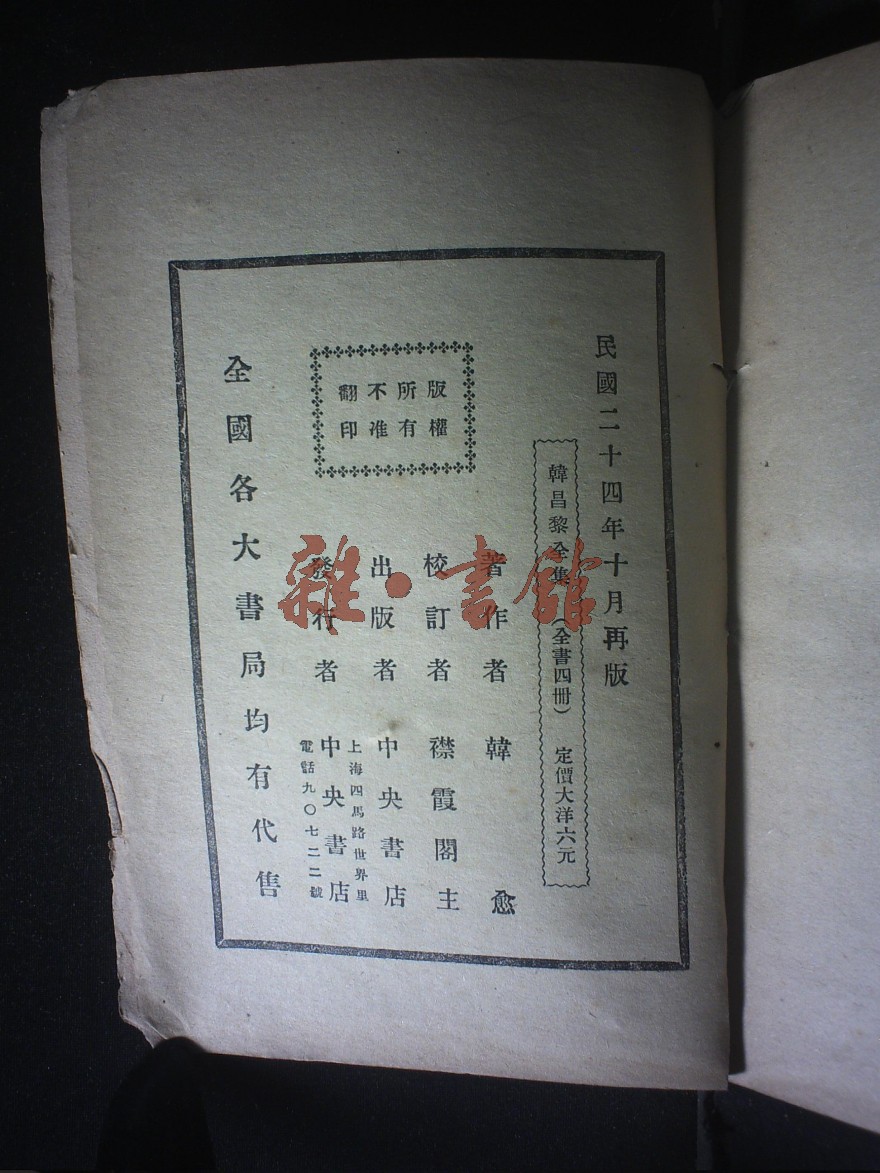 民國二十四年十月再版
韓昌黎全集（全書四冊） 定價大洋六元
著作者 韓愈
校訂者 襟霞閣主
出版者 中央書店
上海四馬路世界里
發行者 中央書店
電話九〇七二二號
版權
所有
不准
翻印
全國各大書局均有代售
雜·書館